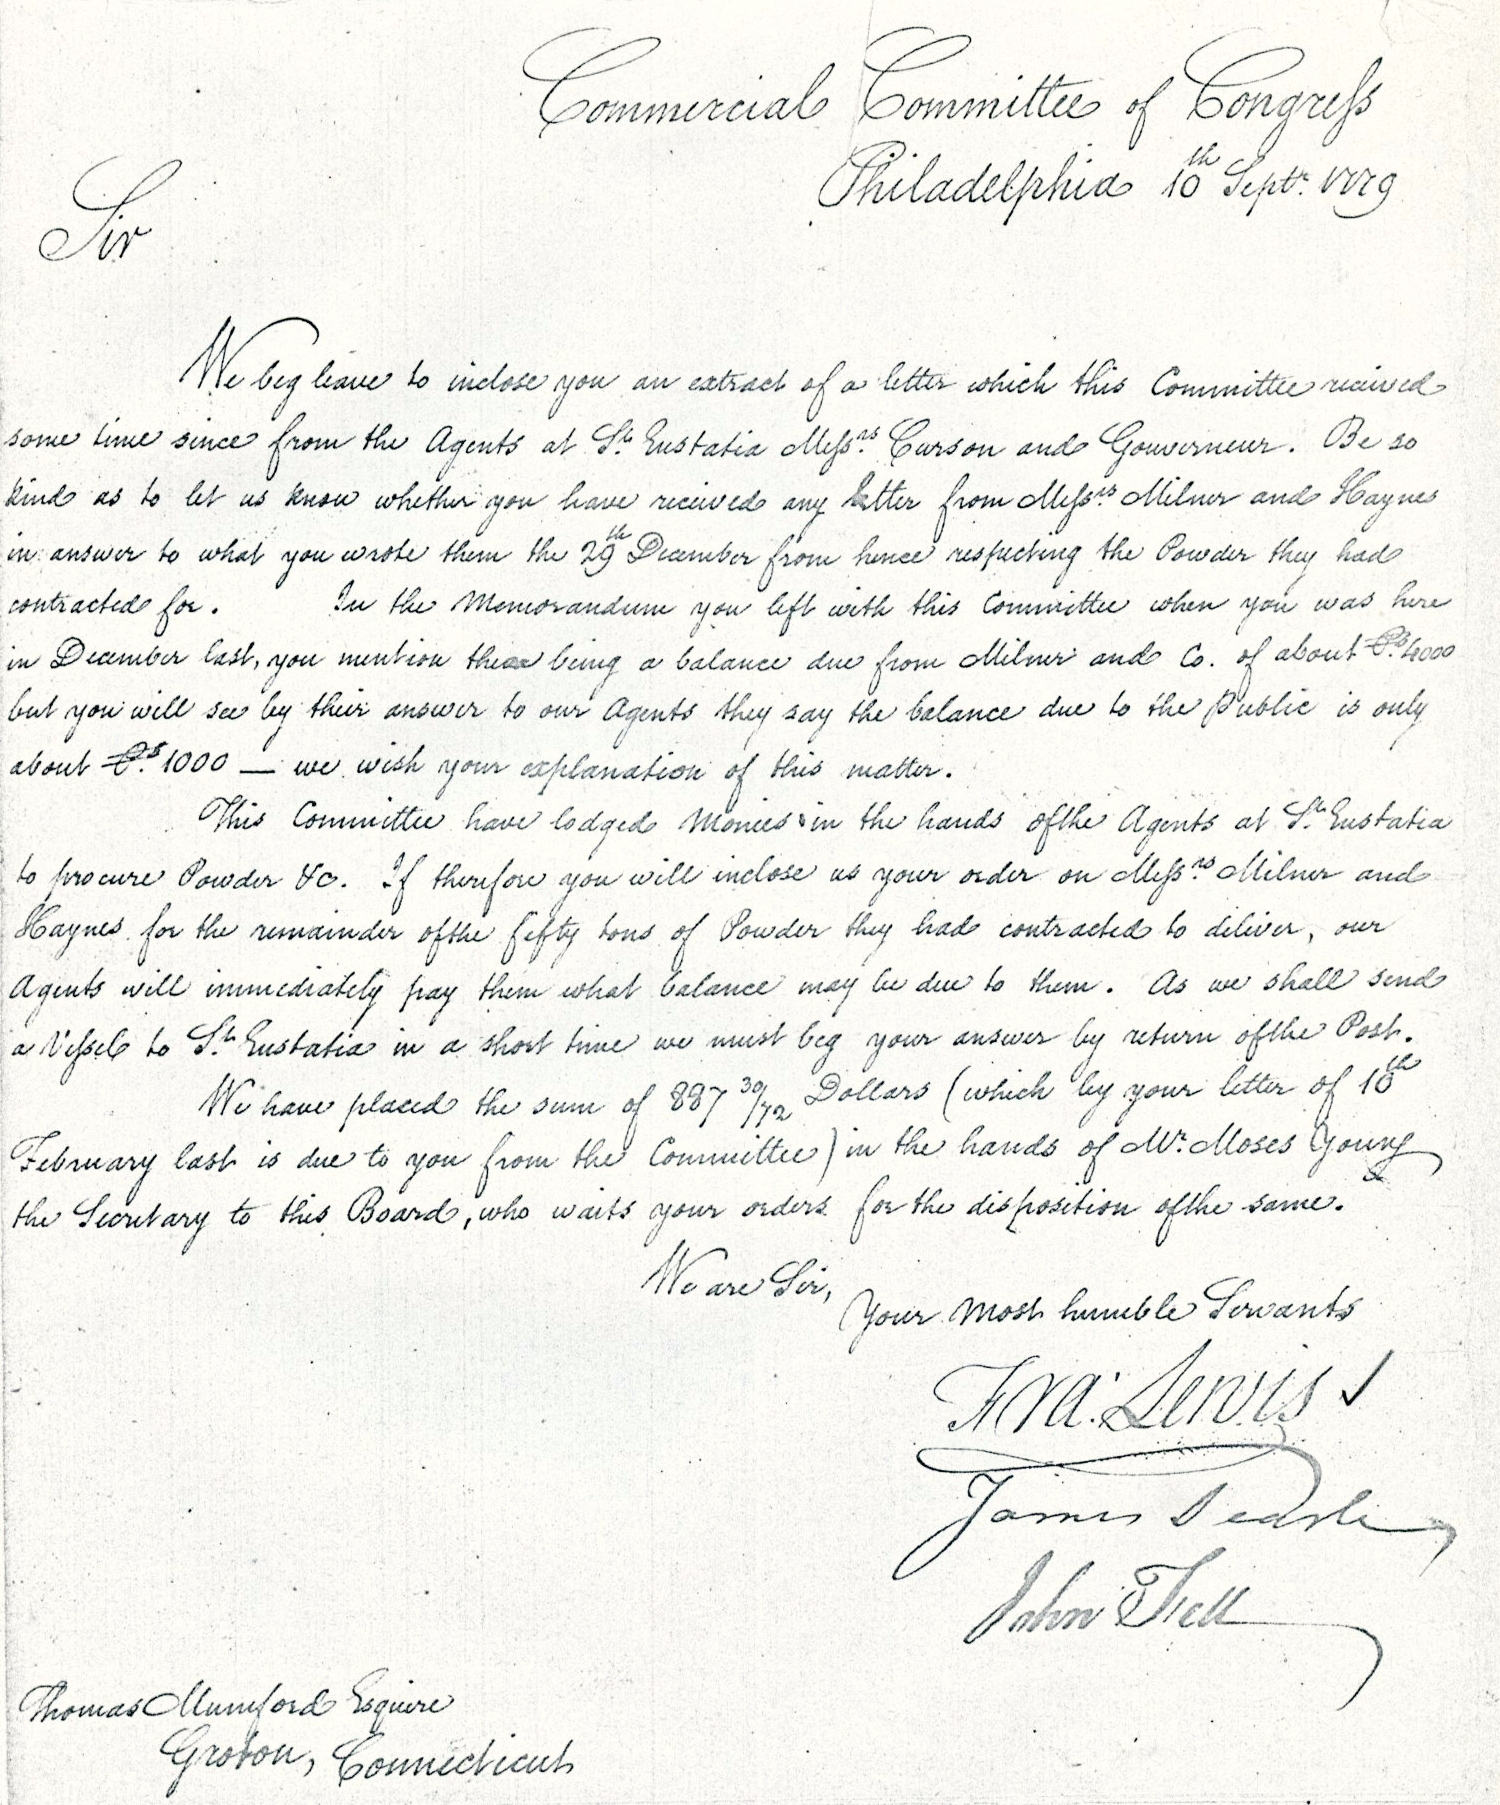 Commercial Committee of Congress
Philadelphia 10th Septr. 1779
Sir
We beg leave to inclose you an extract of a letter which this Committee received
some time since from the Agents at St. Eustatia Messrs. Curson and Gouverneur. Be so
kind as to let us know whether you have received any letter from Messrs. Milner and Haynes
in answer to what you wrote them the 29th December from hence respecting the Powder they had
contracted for. In the Memorandum you left with this Committee when you was here
in December last, you mention there being a balance due from Milner and Co. of about Ps. 4000
but you will see by their answer to our Agents they say the balance due to the Public is only
about Ps. 1000 — we wish your explanation of this matter.
This Committee have lodged Monies in the hands of the Agents at St. Eustatia
to procure Powder &c. If therefore you will inclose us your order on Messrs. Milner and
Haynes for the remainder of the fifty tons of Powder they had contracted to deliver, our
Agents will immediately pay them what balance may be due to them. As we shall send
a Vessel to St. Eustatia in a short time we must beg your answer by return of the Post.
We have placed the sum of 887 30/72 Dollars (which by your letter of 10th
February last is due to you from the Committee) in the hands of Mr. Moses Young
the Secretary to this Board, who waits your orders for the disposition of the same.
We are Sir,
Your most humble Servants
Fra: Lewis
James Searle
John Fell
Thomas Mumford Esquire
Groton, Connecticut